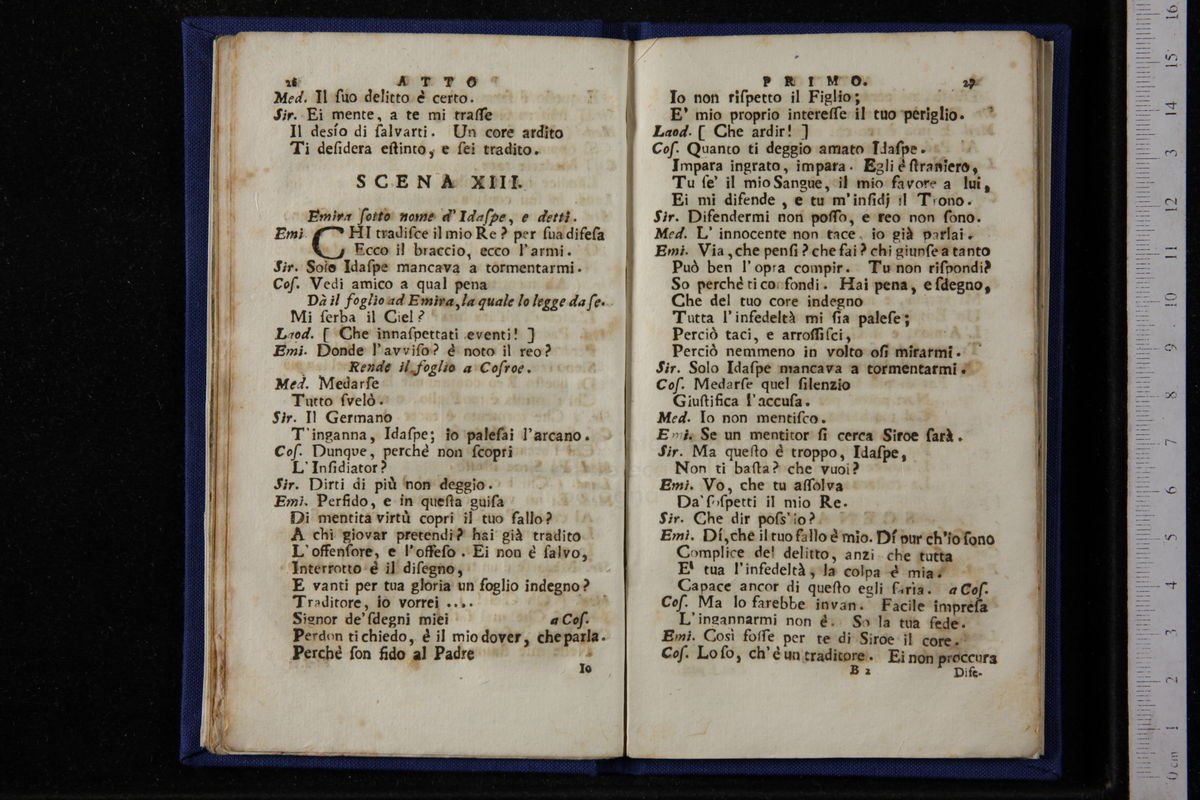 26 ATTO
Med. Il ſuo delitto è certo.
Sir. Ei mente, a te mi traſſe
Il desío di ſalvarti. Un core ardito
Ti deſidera eſtinto, e ſei tradito.
SCENA XIII.
Emira ſotto nome d'Idaſpe, e detti.
Emi CHI tradiſce il mio Re? per ſua difeſa
Ecco il braccio, ecco l'armi.
Sir. Solo Idaſpe mancava a tormentarmi.
Coſ. Vedi amico a qual pena
Dà il foglio ad Emira, la quale lo legge da ſe.
Mi ſerba il Ciel?
Laod. [ Che innaſpettati eventi! ]
Emi. Donde l'avviſo? è noto il reo?
Rende il foglio a Coſroe.
Med. Medarſe
Tutto ſvelò.
Sir. Il Germano
T'inganna, Idaſpe; io paleſai l'arcano.
Coſ. Dunque, perchè non ſcopri
L'Inſidiator?
Sir. Dirti di più non deggio.
Emi. Perfido, e in queſta guiſa
Di mentita virtù copri il tuo fallo?
A chi giovar pretendi? hai già tradito
L'offenſore, e l'offeſo. Ei non è ſalvo,
Interrotto è il diſegno,
E vanti per tua gloria un foglio indegno?
Traditore, io vorrei ....
Signor de'ſdegni miei a Coſ.
Perdon ti chiedo, è il mio dover, che parla.
Perchè ſon fido al Padre
Io
PRIMO. 27
Io non riſpetto il Figlio;
E' mio proprio intereſſe il tuo periglio.
Laod. [ Che ardir! ]
Coſ. Quanto ti deggio amato Idaſpe.
Impara ingrato, impara. Egli è ſtraniero,
Tu ſe' il mio Sangue, il mio favore a lui,
Ei mi difende, e tu m'inſidj il Trono.
Sir. Difendermi non poſſo, e reo non ſono.
Med. L'innocente non tace, io già parlai.
Emi. Via, che penſi? che fai? chi giunſe a tanto
Può ben l'opra compir. Tu non riſpondi?
So perchè ti confondi. Hai pena, e ſdegno,
Che del tuo core indegno
Tutta l'infedeltà mi ſia paleſe;
Perciò taci, e arroſſiſci,
Perciò nemmeno in volto oſi mirarmi.
Sir. Solo Idaſpe mancava a tormentarmi.
Coſ. Medarſe quel ſilenzio
Giuſtifica l'accuſa.
Med. Io non mentiſco.
Emi. Se un mentitor ſi cerca Siroe ſarà.
Sir. Ma queſto è troppo, Idaſpe,
Non ti baſta? che vuoi?
Emi. Vo, che tu aſſolva
Da'ſoſpetti il mio Re.
Sir. Che dir poſs'io?
Emi. Dí, che il tuo fallo è mio. Dí pur ch'io ſono
Complice del delitto, anzi che tutta
E' tua l'infedeltà, la colpa è mia.
Capace ancor di queſto egli ſaria. a Coſ.
Coſ. Ma lo farebbe invan. Facile impreſa
L'ingannarmi non è. So la tua fede.
Emi. Così foſſe per te di Siroe il core.
Coſ. Lo ſo, ch'è un traditore. Ei non proccura
B 2 Diſe-